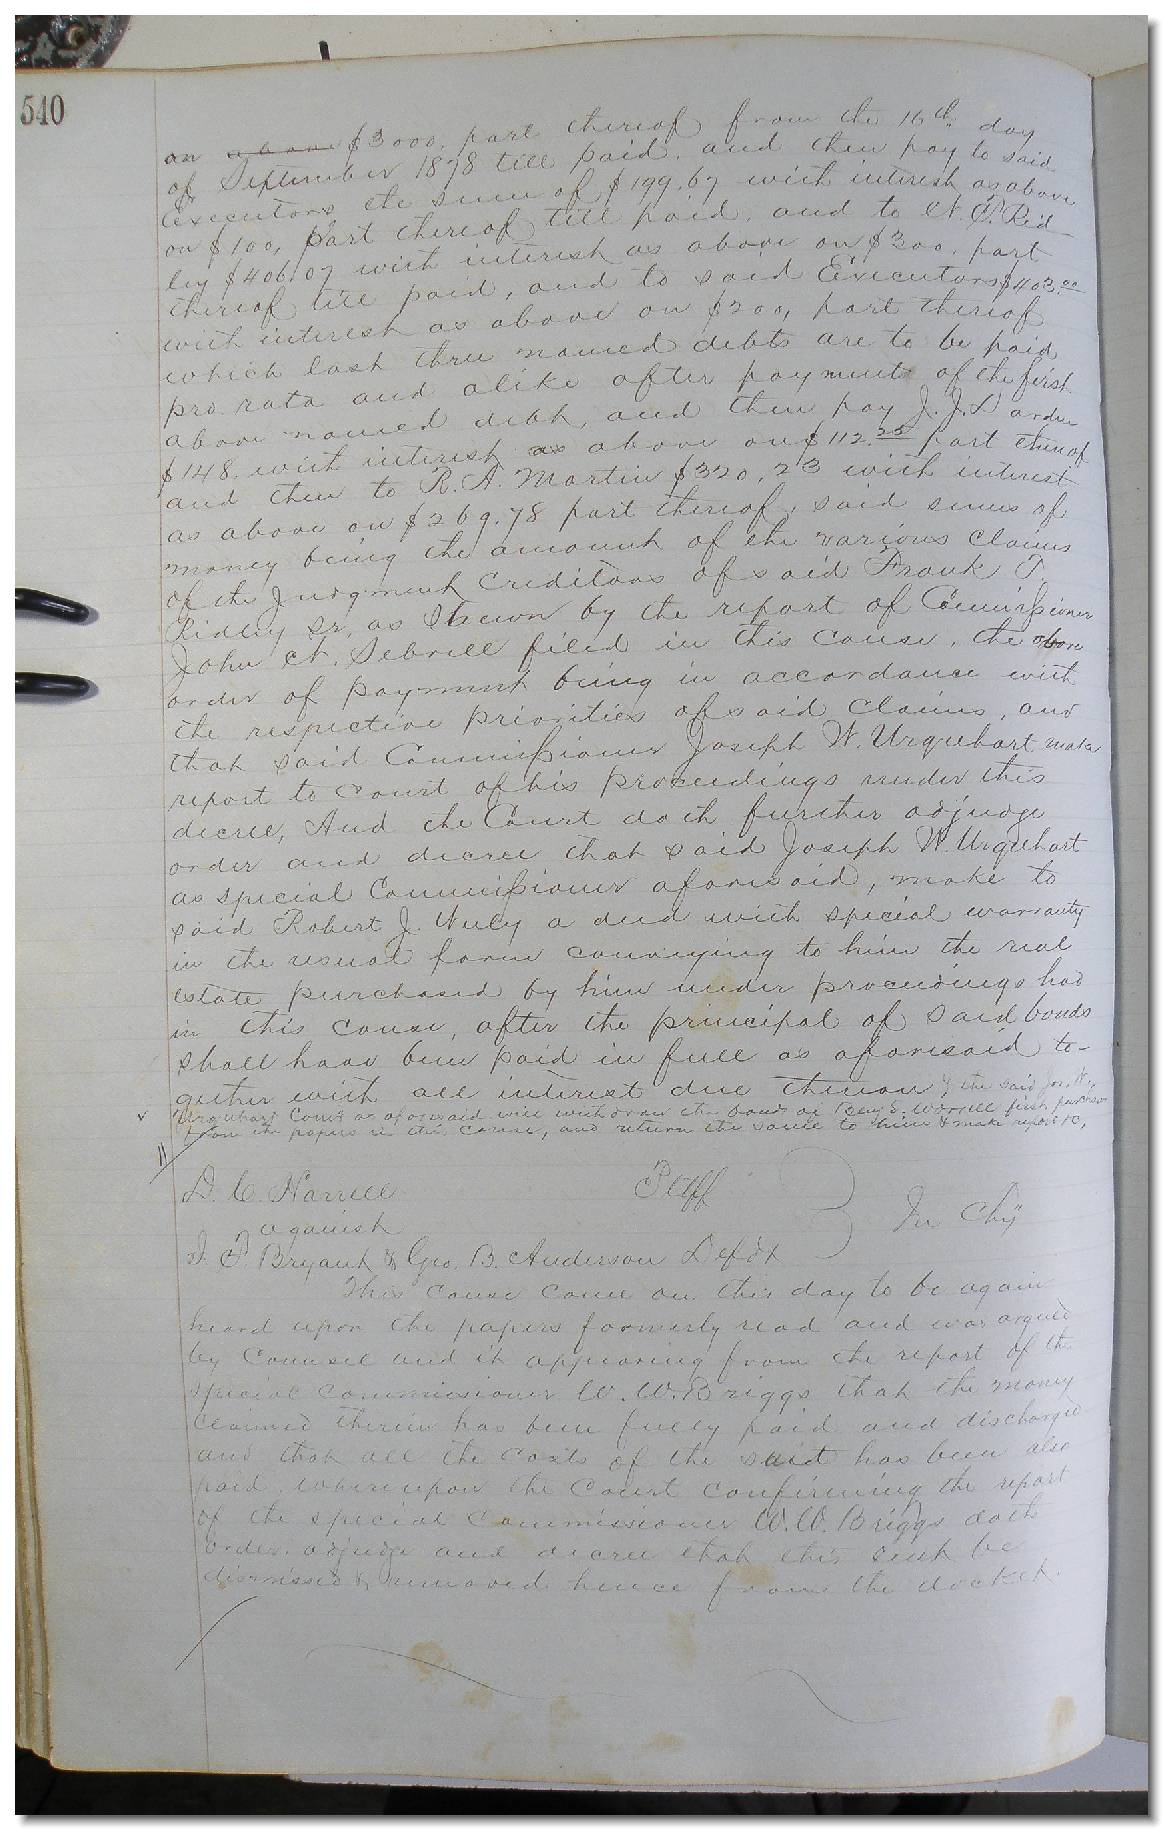 540
on above $3000, part thereof from the 16th day
of September 1878 till paid, and then pay to said
Executors the sum of $199.67 with interest as above
on $100, part thereof till paid, and to N. P. Rid-
ley $406.07 with interest as above on $200, part
thereof till paid, and to said Executors $403.00
with interest as above on $200, part thereof
which last three named debts are to be paid
pro rata and alike after payment of the first
above named debt, and then pay J. J.
$148. with interest as above on $112.25 part thereof
and then to R. A. Martin $320,23 with interest
as above on $269.78 part thereof, said sums of
money being the amount of the various claims
of the Judgment Creditors of said Frank T.
Ridley Sr. as shewn by the report of Commissioner
John N. Sebrell filed in this cause, the above
order of payment being in accordance with
the respective priorities of said claims, and
that said Commissioner Joseph W. Urquhart make
report to court of his proceedings under this
decree, And the Court doth further adjudge
order and decree that said Joseph W. Urquhart
as special Commissioner aforesaid, make to
said Robert J. Neely a deed with special warranty
in the usual form conveying to him the real
estate purchased by him under proceedings had
in this cause, after the principal of said bonds
shall have been paid in full as aforesaid to-
gether with all interest due thereon & the said Jos. W.
Urquhart Comr as aforesaid will withdraw the bonds of Benj. E. Worrell first purchaser
from the papers in this cause, and return the same to him & make report &c,
D. C. Harrell Plff
against In Chy
J. P. Bryant & Geo. B. Anderson Defdt
This cause came on this day to be again
heard upon the papers formerly read and was argued
by Counsel and it appearing from the report of the
special commissioner W. W. Briggs that the money
claimed therein has been fully paid and discharged
and that all the costs of the suit has been also
paid, whereupon the Court confirming the report
of the special commissioner W. W. Briggs doth
order, adjudge and decree that this suit be
dismissed & removed hence from the docket.